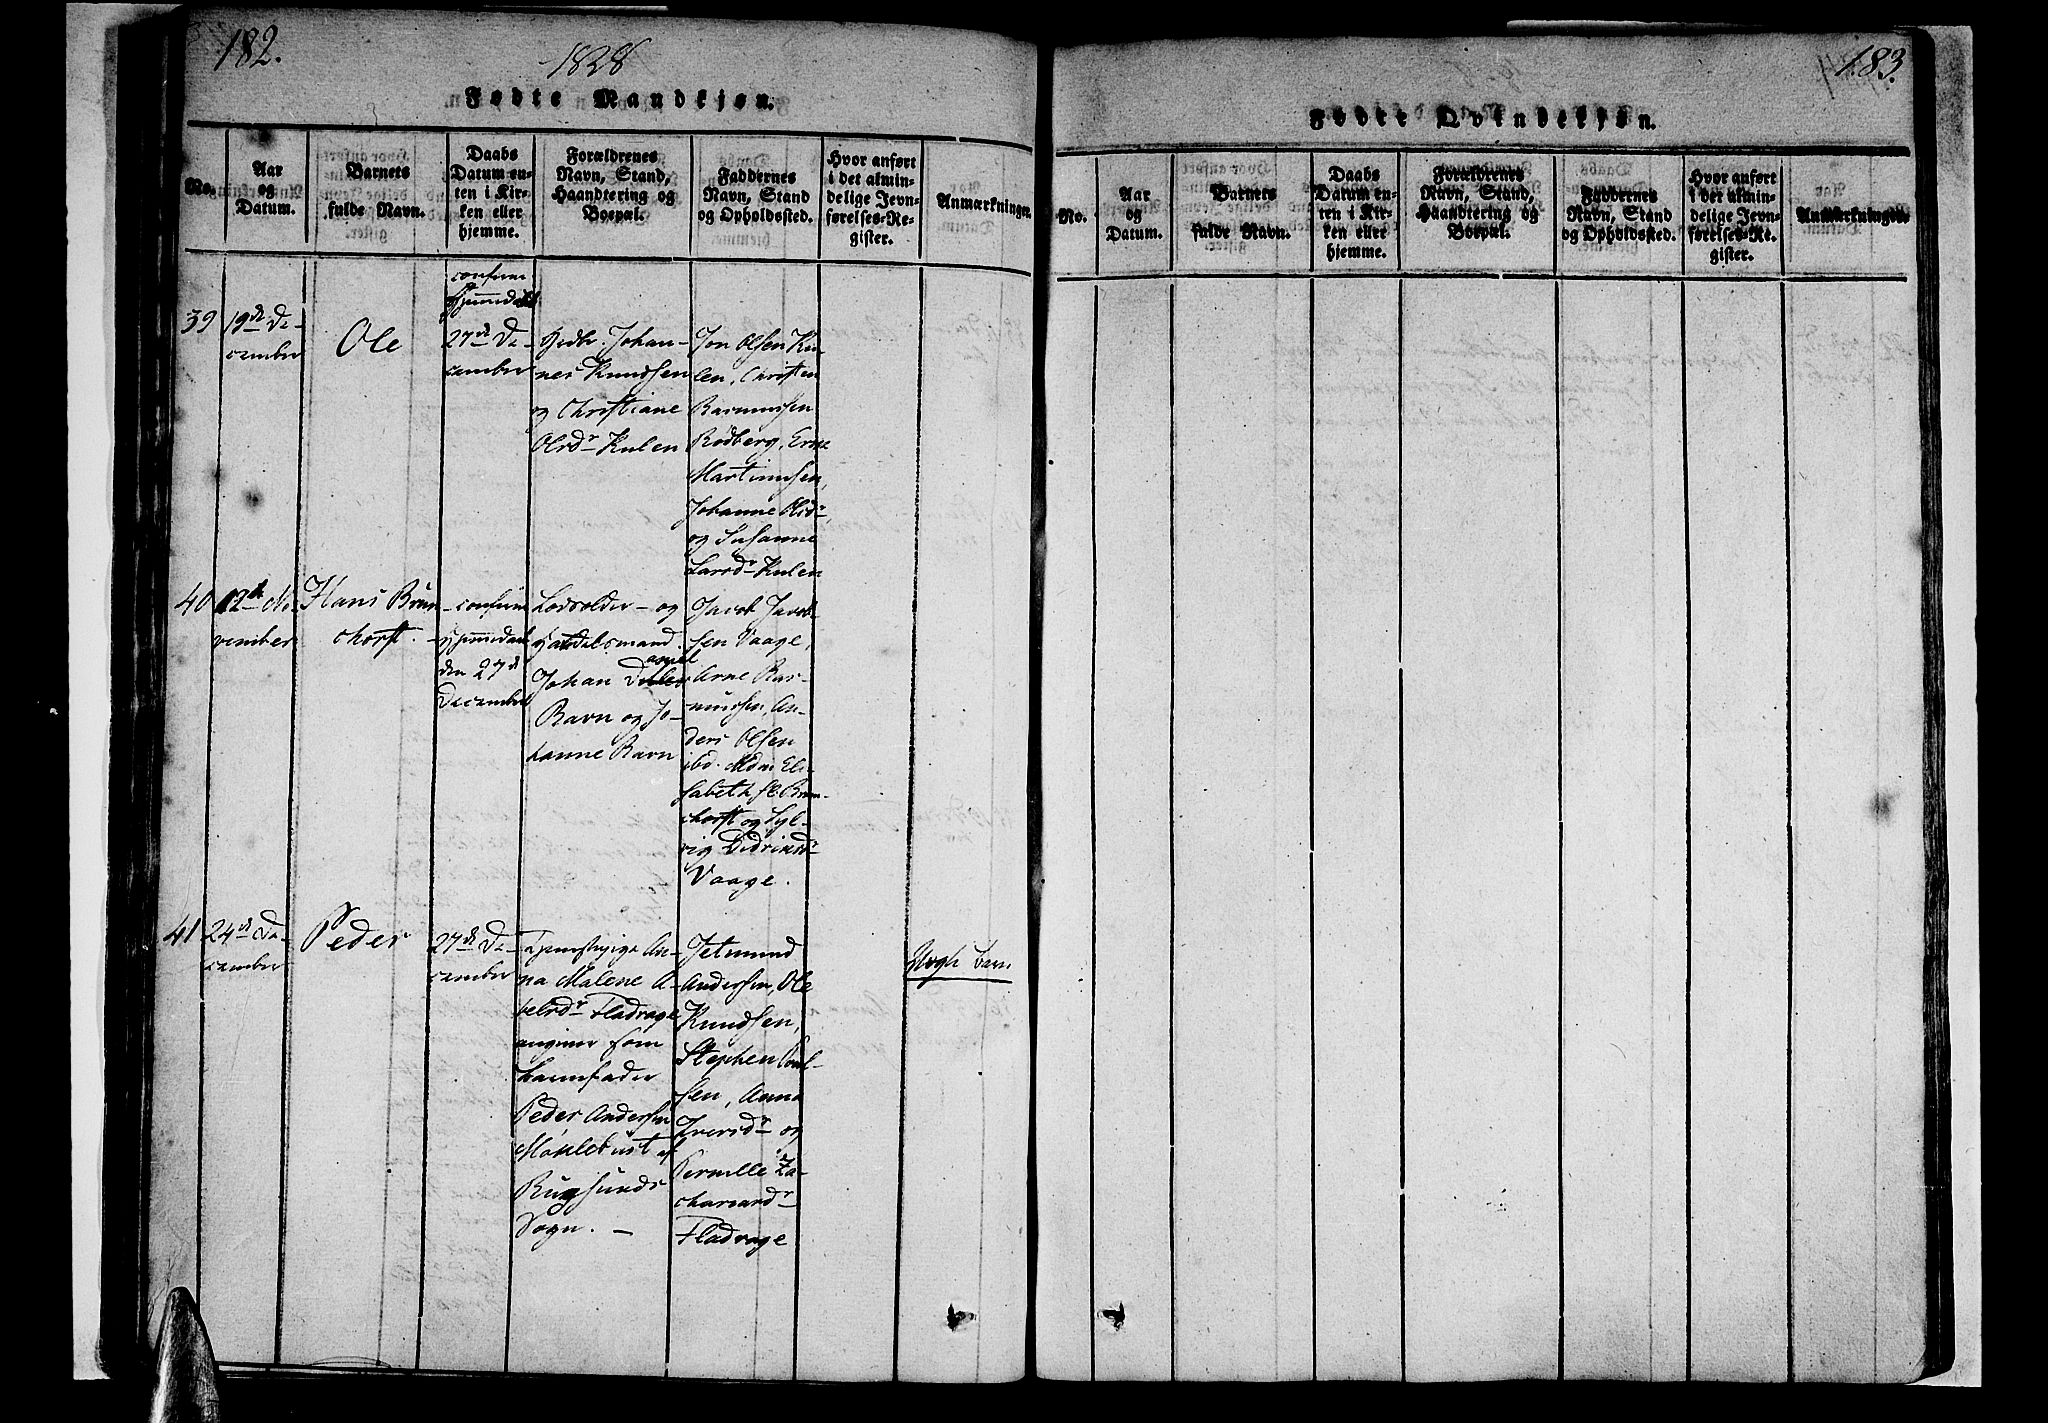 182.
1828
Fødte Mandkjøn.
No.
Aar
og
Datum.
Barnets
fulde Navn.
Daabs
Datum en-
ten i Kir-
ken eller
hjemme.
Forældrenes
Navn, Stand,
Haandtering og
Boepæl.
Faddernes
Navn, Stand
og Opholdssted.
Hvor anført
i det almin-
delige Jevn-
førelses-Re-
gister.
Anmærkninger.
39
19de De-
cember
Ole
confirm
hjemmed
27de De-
cember
Johan-
nes Knudsen
og Christiane
Olsdr Kulen
Jon Olsen Ku-
len, Christen
Rasmussen
Rødberg,
Martinusen,
Johanne Olsdr
og Susanne
Larsdr Kulen
40
12te No-
vember
Hans Brun-
chorst.
confirm
hjemmedøbt
den 27de
December
og
Handelsmand
Johan
Ravn og Jo-
hanne Ravn
Jacob Jacob-
sen Vaage,
Arne Ras-
mussen, An-
ders Olsen
ibd. Mdm Eli-
sabeth Brun-
chorst og Syl-
vig Didriksdr
Vaage.
41
24de De-
cember
Peder
27de De-
cember
An-
na Malene A-
belsdr Fladrage
angiver som
barnefader
Peder Andersen
Möklebust af
Rugsunds
Sogn. —
Jetmund
Andersen, Ole
Knudsen,
Stephen Poul-
sen, Anna
Iversdr og
Pernille Za-
chariasdr
Fladrage
Uægte barn
183.
Fødte Qvindekjøn.
No.
Aar
og
Datum.
Barnets
fulde Navn.
Daabs
Datum en-
ten i Kir-
ken eller
hjemme.
Forældrenes
Navn, Stand,
Haandtering og
Boepæl.
Faddernes
Navn, Stand
og Opholdssted.
Hvor anført
i det almin-
delige Jevn-
førelses-Re-
gister.
Anmærkninger.